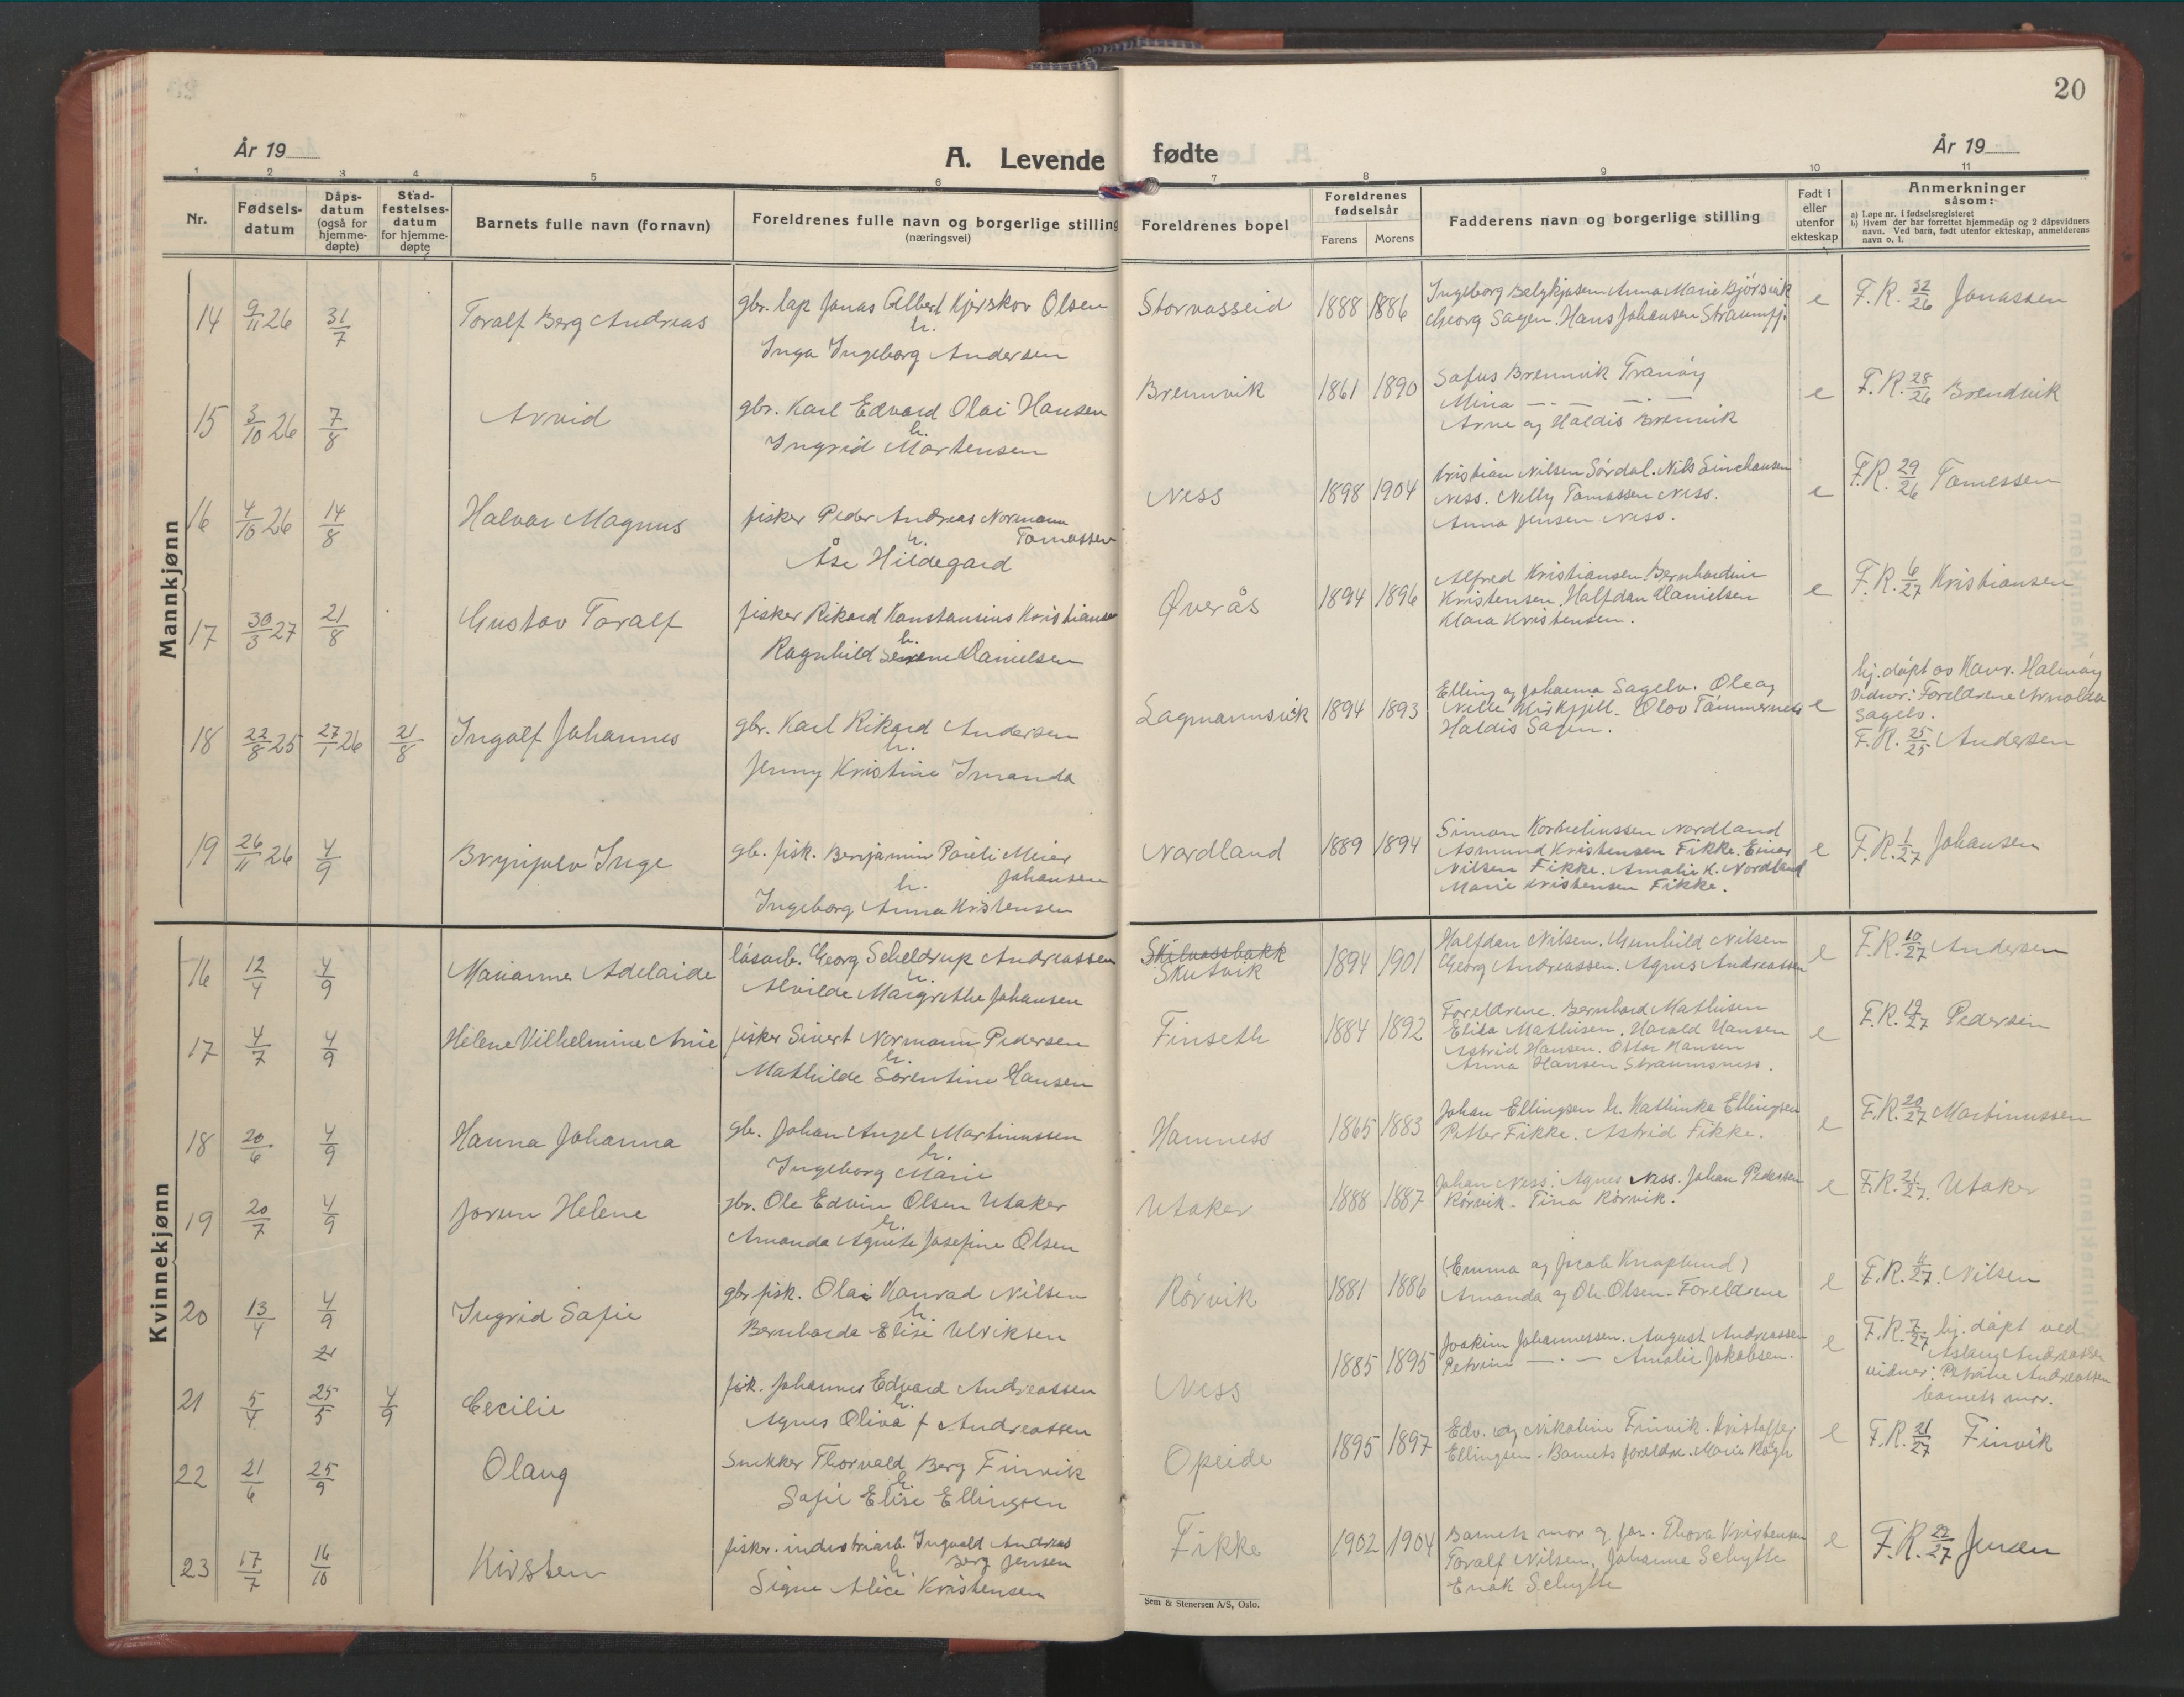 20
År 19
A. Levende fødte
År 19
1 2 3 4 5 6 7 8 9 10 11
Nr.
Fødsels-
datum
Dåps-
datum
(også for
hjemme-
døpte)
Stad-
festelses-
datum
for hjemme-
døpte
Barnets fulle navn (fornavn)
Foreldrenes fulle navn og borgerlige stilling
(næringsvei)
Foreldrenes bopel
Foreldrenes
fødselsår
Farens Morens
Fadderens navn og borgerlige stilling
Født i
eller
utenfor
ekteskap
Anmerkninger
såsom:
a) Løpe nr. i fødselsregisteret
b) Hvem der har forrettet hjemmedåp og 2 dåpsvidners
navn. Ved barn, født utenfor ekteskap, anmelderens
navn o. l.
Mannkjønn
14 9/11 26 31/7 Toralf Berg Andreas
gbr. lap Jonas Albert Kjerskov Olsen
h.
Inga Ingeborg Andersen
Storvasseid 1888 1886
Ingeborg Anna Marie Bjørsvik
Georg Sagen. Hans Johansen Straumfj.
e F.R. 32/26 Jonassen
15 3/10 26 7/8 Arvid
gbr. Karl Edvard Olai Hansen
h.
Ingrid Mortensen
Brennvik 1861 1890
Sofus Brennvik Tranøy
Mina — . — — . —
Arne og Haldis Brennvik
e F.R. 28/26 Brendvik
16 4/10 26 14/8 Halvar Magnus
fisker Peder Andreas Normann
Tomassen
h.
Åse Hildegard
Ness 1898 1904
Kristian Nilsen Sørdal. Nils
Ness. Nelly Tomassen Ness.
Anna Jensen Ness.
e F.R. 29/26 Tomessen
17 30/3 27 21/8 Gustav Toralf
fisker Rikard Konstansius Kristiansen
h.
Ragnhild Danielsen
Øverås 1894 1896
Alfred Kristiansen. Bernhardine
Kristensen. Halfdan Danielsen
Klara Kristensen.
e F.R. 6/27 Kristiansen
18 22/8 25 27/1 26 21/8 Ingolf Johannes
gbr. Karl Rikard Andersen
h.
Jenny Kristine Imanda
Lagmannsvik 1894 1893
Elling og Johanna Sagelv. Ole og
Nelle Kirkfjell. Olov Tømmernes
Haldis Sagen.
e
hj. døpt av Hamøy
Vidner: Foreldrene Arnolda
Sagelv.
F.R. 25/25 Andersen
19 26/11 26 4/9 Brynjulv Inge
gb. fisk. Benjamin Pareli Meier
Johansen
h.
Ingeborg Anna Kristensen
Nordland 1889 1894
Simon Korneliussen Nordland
Asmund Kristensen Fikke. Einar
Nilsen Fikke. Amalie K. Nordland
Marie Kristensen Fikke.
e F.R. 1/27 Johansen
Kvinnekjønn
16 12/4 4/9 Marianne Adelaide
løsarb. Georg Scheldrup Andreassen
h.
Alvilde Margrethe Johansen
Skilvassbakk
Skutvik
1894 1901
Halfdan Nilsen. Gunhild Nilsen
Georg Andreassen. Agnes Andreassen
e F.R. 10/27 Andersen
17 4/7 4/9 Helene Vilhelmine Anie
fisker Sivert Normann Pedersen
h.
Mathilde Sørentine Hansen
Finseth 1884 1892
Foreldrene. Bernhard Mathisen
Elida Mathisen. Harald Hansen
Astrid Hansen. Ottar Hansen
Anna Hansen Straumsnes.
e F.R. 19/27 Pedersen
18 20/6 4/9 Hanna Johanna
gb. Johan Angel Martinussen
h.
Ingeborg Marie
Hamness 1865 1883
Johan Ellingsen h. Kathinka Ellingsen
Petter Fikke. Astrid Fikke.
e F.R. 20/27 Martinussen
19 20/7 4/9 Jorun Helene
gbr. Ole Edvin Olsen Utaker
h.
Amanda Agnete Josefine Olsen
Utaker 1888 1887
Johan Ness. Agnes Ness. Johan Pedersen
Rørvik. Tina Rørvik.
e F.R. 24/27. Utaker
20 13/4 4/9 Ingrid Sofie
gbr fisk. Olai Konrad Nilsen
h.
Bernharda Elise Ulriksen
Rørvik 1881 1886
(Emma og Jacob Knaplund)
Amanda og Ole Olsen - Foreldrene
e F.R. 11/27. Nilsen
21 5/4 25/5 4/9 Cecilie
fisk. Johannes Edvard Andreassen
h.
Agnes Oliva f Andreassen
Ness 1885 1895
Joakim Johannessen. August Andreassen
Petrine — . — Amalie Jakobsen.
e
F.R. 7/27 hj. døpt ved
Aslaug Andreassen
vidner: Petrine Andreassen
barnets mor.
22 21/6 25/9 Olaug
Snekker Thorvald Berg Finvik
h.
Sofie Elise Ellingsen
Opeide 1895 1897
Edv. og Nikoline Finvik. Kristoffer
Ellingsen. Barnets foreldre. Marie
e F.R. 21/27 Finvik
23 17/7 16/10 Kirsten
fisker. industriarb. Ingvald Andreas
Berg Jensen
h.
Signe Alice Kristensen
Fikke 1902 1904
Barnets mor og far. Thora Kristensen
Toralf Nilsen. Johanne Schytte
Enok Schytte
e F.R. 22/27 Jensen
Sem & Stenersen A/S, Oslo.